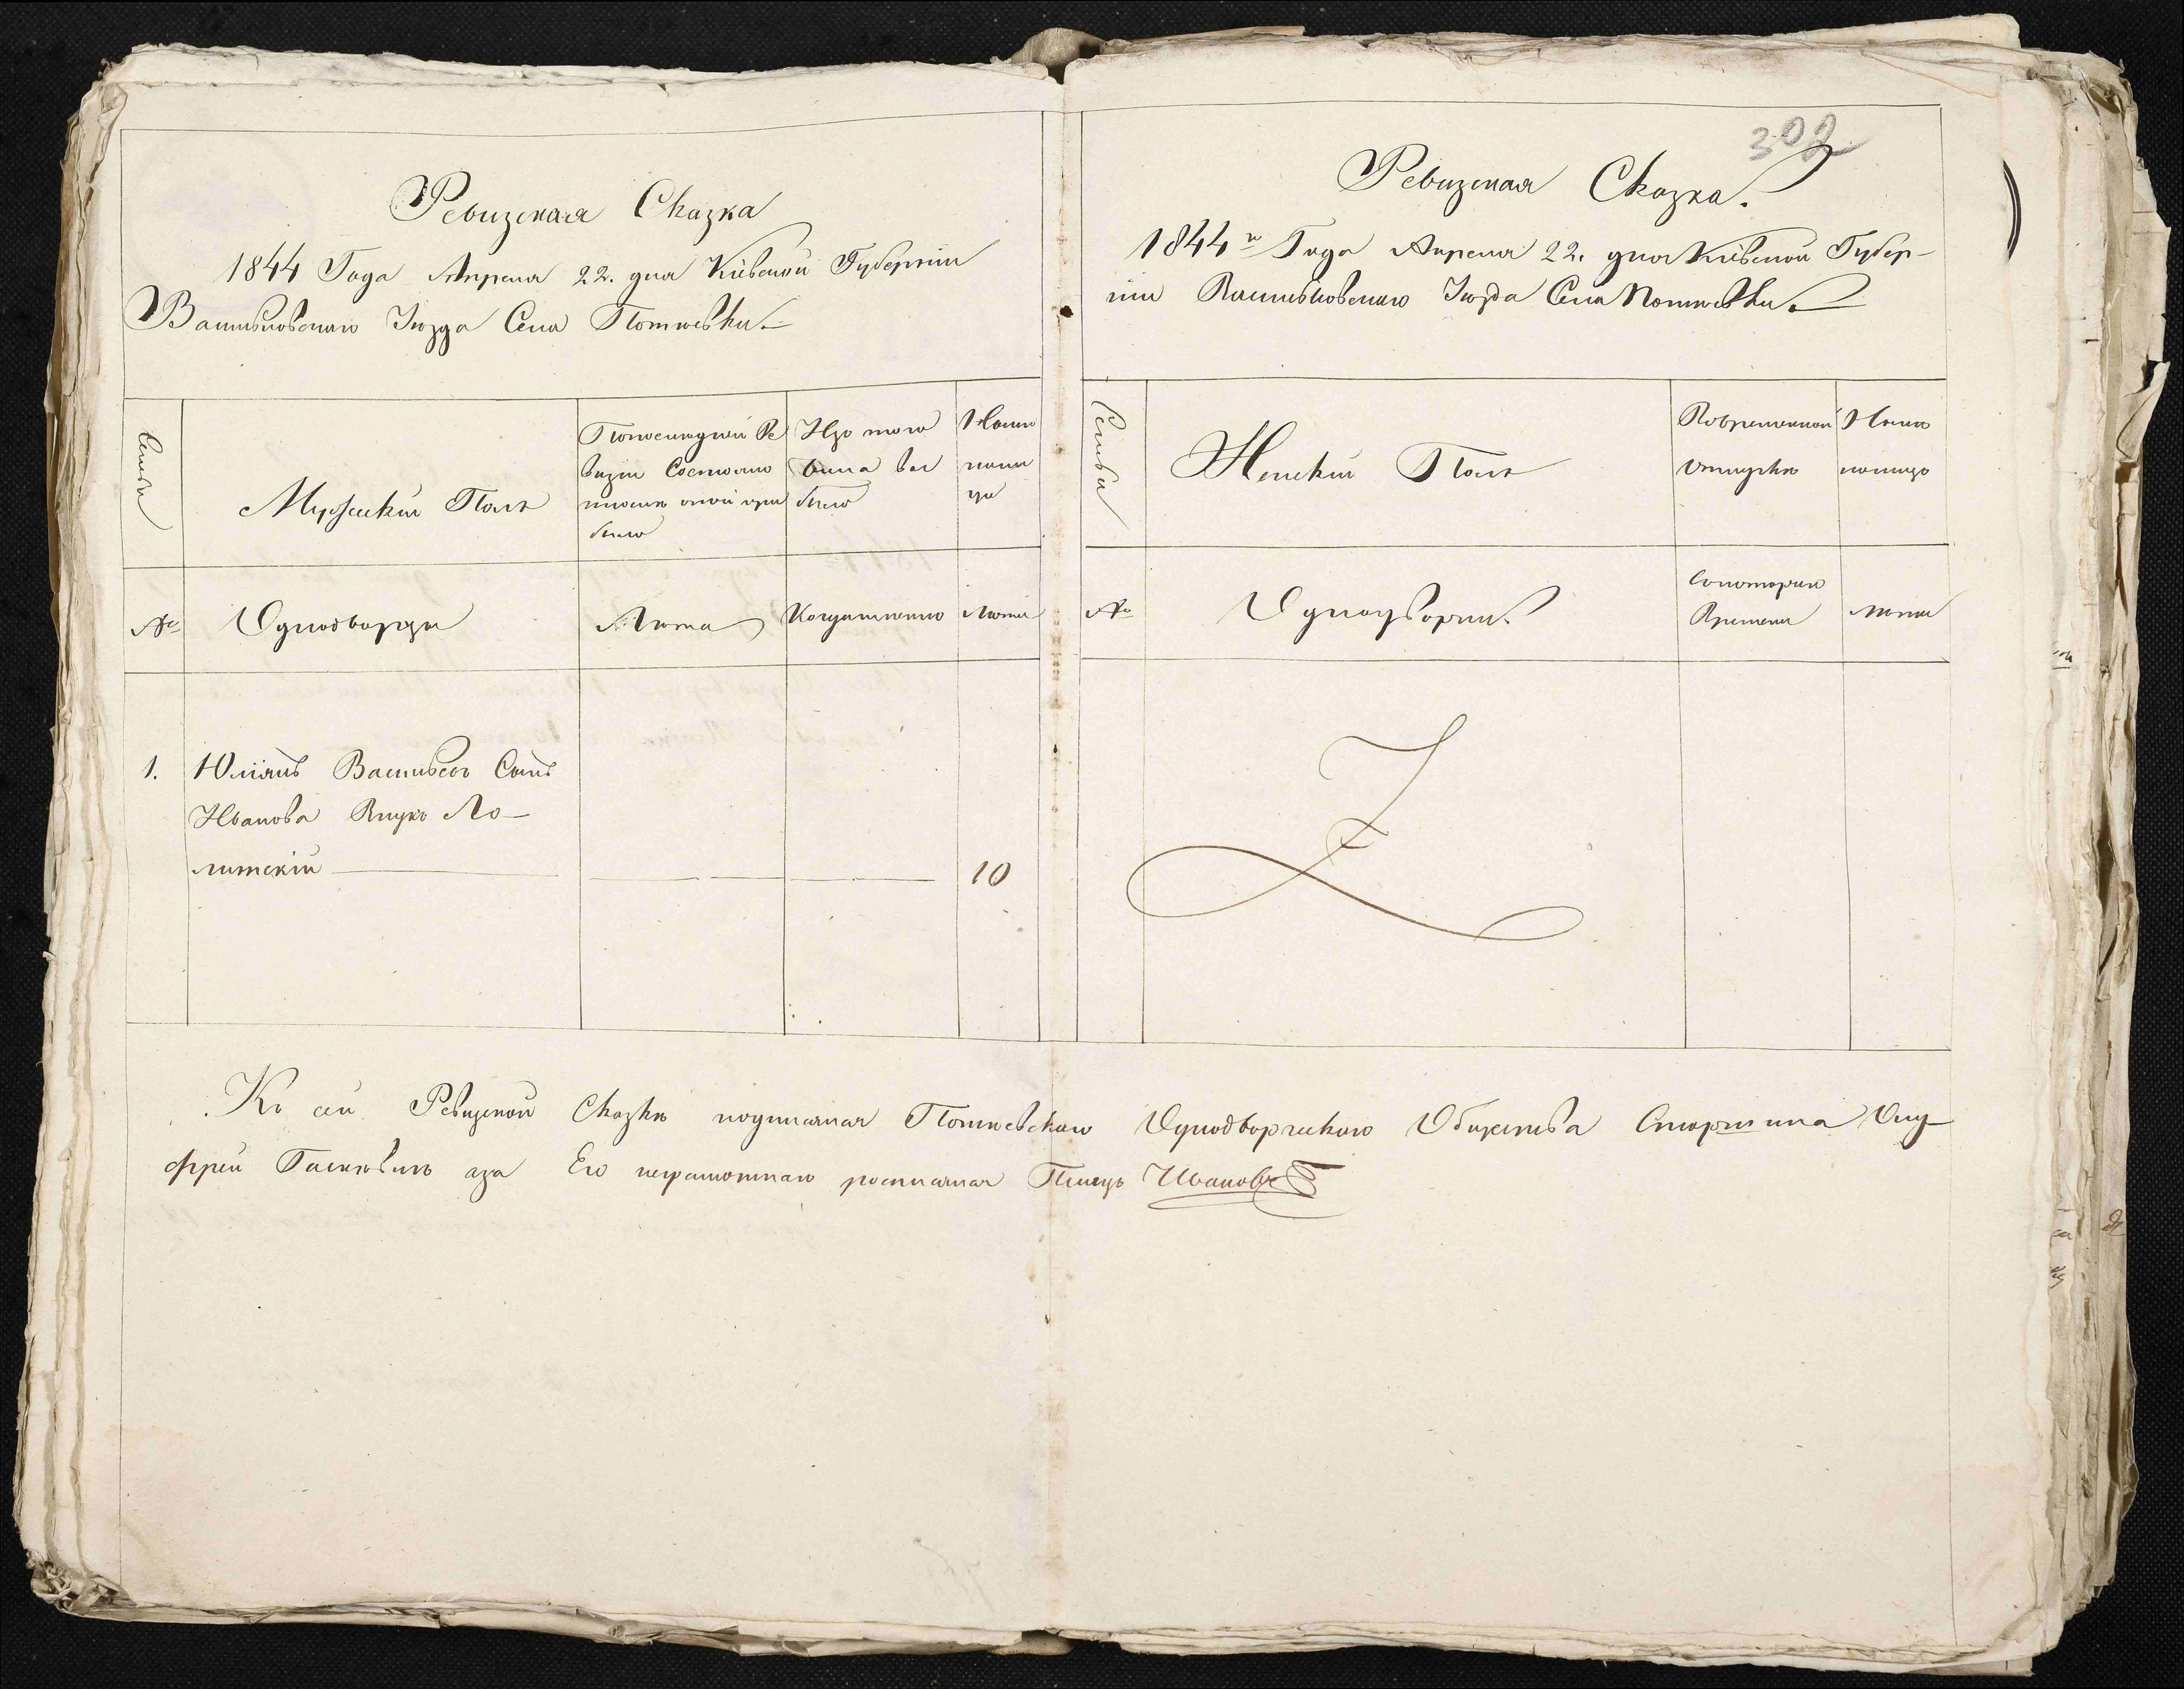 Ревизская Сказка
1844 Года Апреля 22. дня Кіевской Губерніи
Васильковскаго Уѣзда Села Потіевки
Семьи
Мужескій Полъ
По последней Ре
визіи Состояло
и после оной при
было
Изъ того
числа вы
было
Ныне
на ли
це
№
Однодворцы
Лѣта
Когда именно
Лѣта
1. Юліянъ Васильевъ Сынъ
Иванова Внукъ Ло-
литскій 10
302
Ревизская Сказка.
1844го Года Апреля 22. дня Кіевской Губер-
ніи Васильковскаго Уѣзда Села Потіевки
Семьи
Женскій Полъ
Во временной
отлучкѣ
Ныне
на лицо
№
Однодворки
Съ котораго
Времени
Лѣта
Къ сей Ревизской Сказкѣ подписался Потіевскаго Однодворческаго Общества Старшина Ону-
фрей а за Его неграмотнаго росписался Писецъ Ивановъ